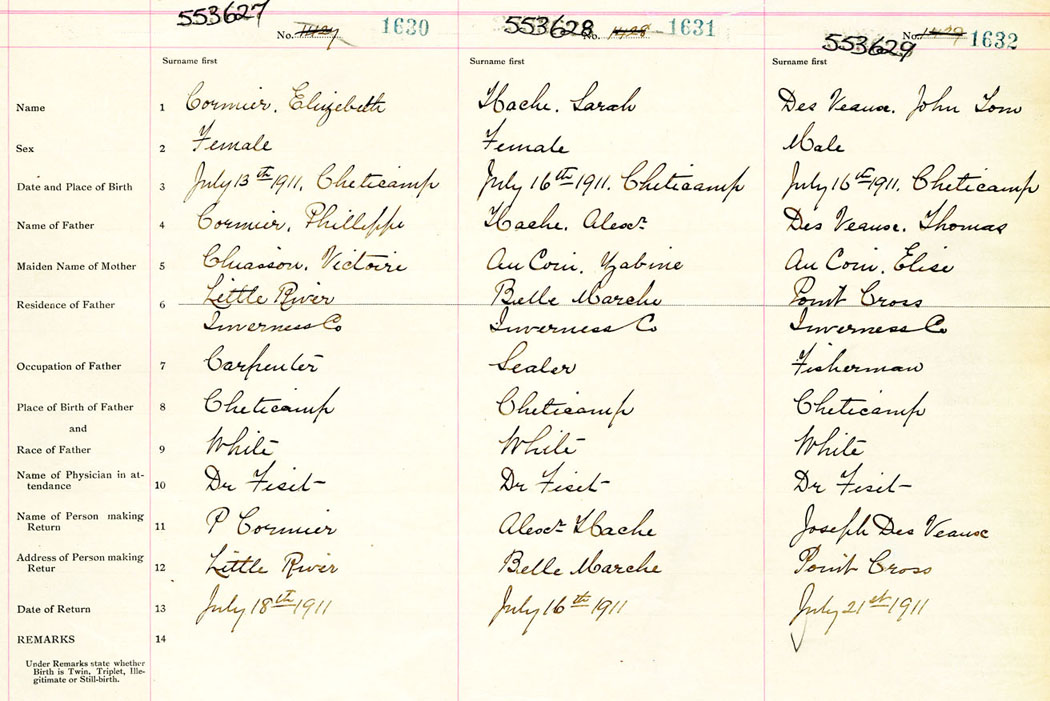 553627 553628 553629
No. 1630 No. 1631 No. 1632
Surname first Surname first Surname first
Name 1 Cormier, Elizebeth Hache, Sarah Des Veaux, John Tom
Sex 2 Female Female Male
Date and Place of Birth 3 July 13th 1911, Cheticamp July 16th 1911, Cheticamp July 16th 1911, Cheticamp
Name of Father 4 Cormier, Philleppe Hache, Alexr Des Veaux, Thomas
Maiden Name of Mother 5 Chiasson, Victoire Au Coin, Au Coin, Elise
Residence of Father 6 Little River Belle Marche Point Cross
Inverness Co Inverness Co Inverness Co
Occupation of Father 7 Carpenter Sealer Fisherman
Place of Birth of Father 8 Cheticamp Cheticamp Cheticamp
and
Race of Father 9 White White White
Name of Physician in at-
tendance 10 Dr Fiset Dr Fiset Dr Fiset
Name of Person making
Return 11 P Cormier Alexr Hache Joseph Des Veaux
Address of Person making
Retur 12 Little River Belle Marche Point Cross
Date of Return 13 July 18th 1911 July 16th 1911 July 21st 1911
REMARKS 14
Under Remarks state whether
Birth is Twin, Triplet, Ille-
gitimate or Still-birth.